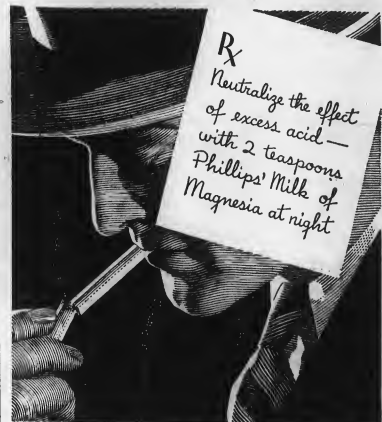 Rx
Neutralize the effect
of excess acid —
with 2 teaspoons
Phillips' Milk of
Magnesia at night